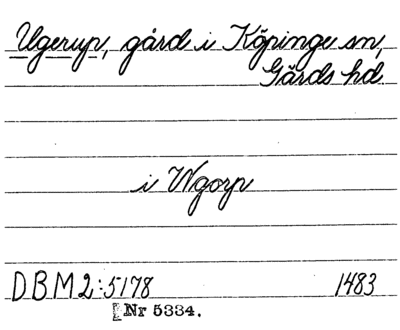 Ugerup, gård i Köpinge sn,
Gärds hd.
i Wgorp
DBM2:5178 1483
[Nr 5334.